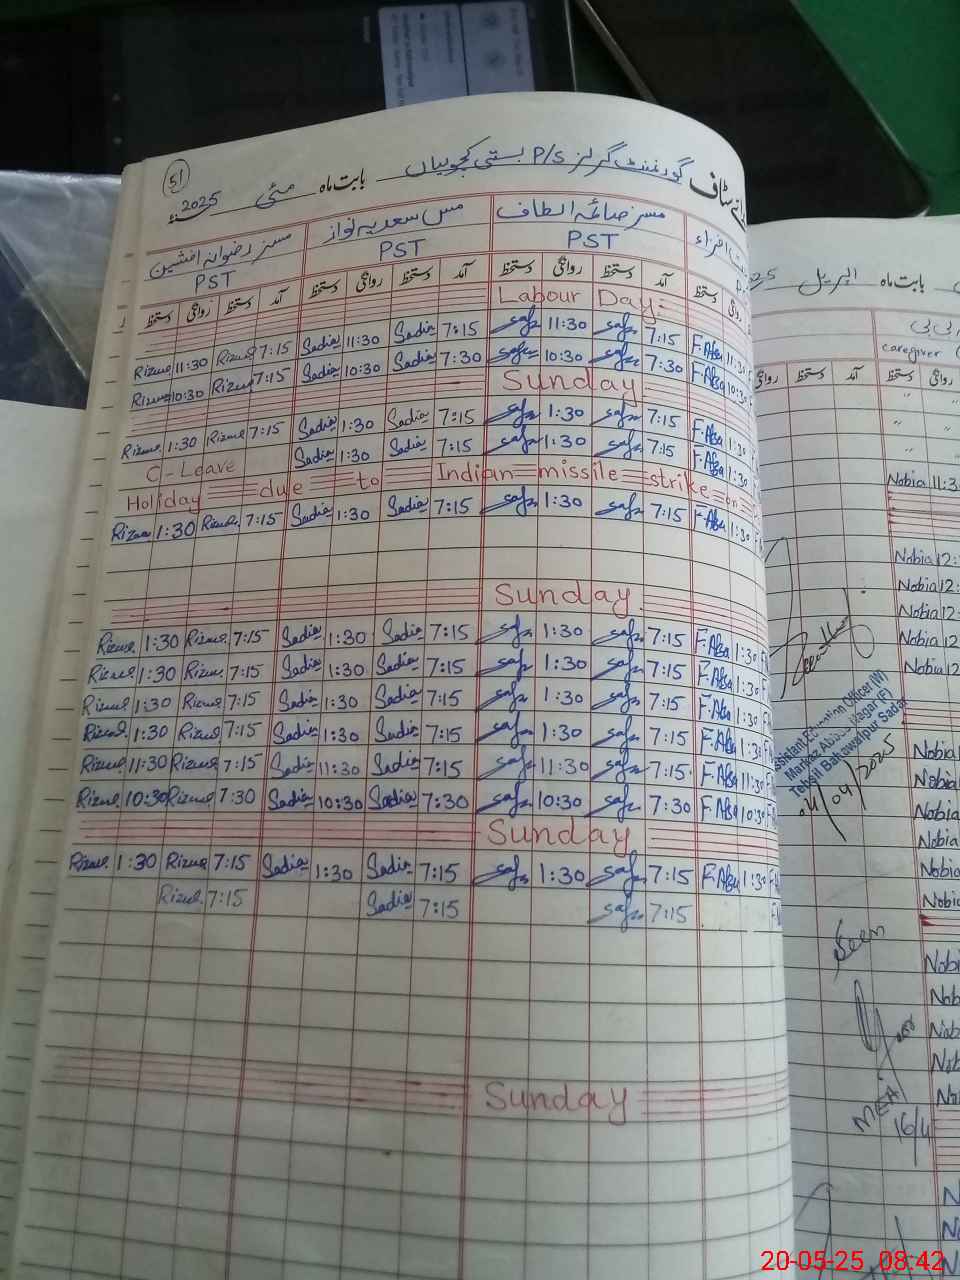 گورنمنٹ گرلز P/S بستی کجوبیاں بابت ماہ مئی 2025ء
51
مسز صائمہ الطاف مس سعدیہ نواز مسز رضوانہ افشین
PST PST PST
دستخط روانگی دستخط آمد دستخط روانگی دستخط آمد دستخط روانگی دستخط
Labour Day
Rizwa 11:30 Rizwa 7:15 Sadia 11:30 Sadia 7:15 Safa 11:30 Safa 7:15 F.Absa 11:30
Rizwa 10:30 Rizwa 7:15 Sadia 10:30 Sadia 7:30 Safa 10:30 Safa 7:30 F.Absa 10:30
Sunday
Rizwa 1:30 Rizwa 7:15 Sadia 1:30 Sadia 7:15 Safa 1:30 Safa 7:15 F.Absa 1:30
C-Leave Sadia 1:30 Sadia 7:15 Safa 1:30 Safa 7:15 F.Absa 1:30
Holiday due to Indian missile strike on
Rizwa 1:30 Rizwa 7:15 Sadia 1:30 Sadia 7:15 Safa 1:30 Safa 7:15 F.Absa 1:30
Sunday
Rizwa 1:30 Rizwa 7:15 Sadia 1:30 Sadia 7:15 Safa 1:30 Safa 7:15 F.Absa 1:30
Rizwa 1:30 Rizwa 7:15 Sadia 1:30 Sadia 7:15 Safa 1:30 Safa 7:15 F.Absa 1:30
Rizwa 1:30 Rizwa 7:15 Sadia 1:30 Sadia 7:15 Safa 1:30 Safa 7:15 F.Absa 1:30
Rizwa 1:30 Rizwa 7:15 Sadia 1:30 Sadia 7:15 Safa 1:30 Safa 7:15 F.Absa 1:30
Rizwa 11:30 Rizwa 7:15 Sadia 11:30 Sadia 7:15 Safa 11:30 Safa 7:15 F.Absa 11:30
Rizwa 10:30 Rizwa 7:30 Sadia 10:30 Sadia 7:30 Safa 10:30 Safa 7:30 F.Absa 10:30
Sunday
Rizwa 1:30 Rizwa 7:15 Sadia 1:30 Sadia 7:15 Safa 1:30 Safa 7:15 F.Absa 1:30
Rizwa 7:15 Sadia 7:15 Safa 7:15
Sunday
بابت ماہ اپریل
caregiver
دستخط روانگی دستخط آمد دستخط روانگی
Nobia 11:3
Nobia 12:
Nobia 12:
Nobia 12
Nobia 12
Nobia 12
Assistant Education Officer (W)
Markaz Abbas Nagar (F)
Tehsil Bahawalpur Sadar
04/04/2025
Nobia
Nobia
Nobia
Nobia
Nobia
Nobia
Seen
MEA
16/4
20-05-25 08:42